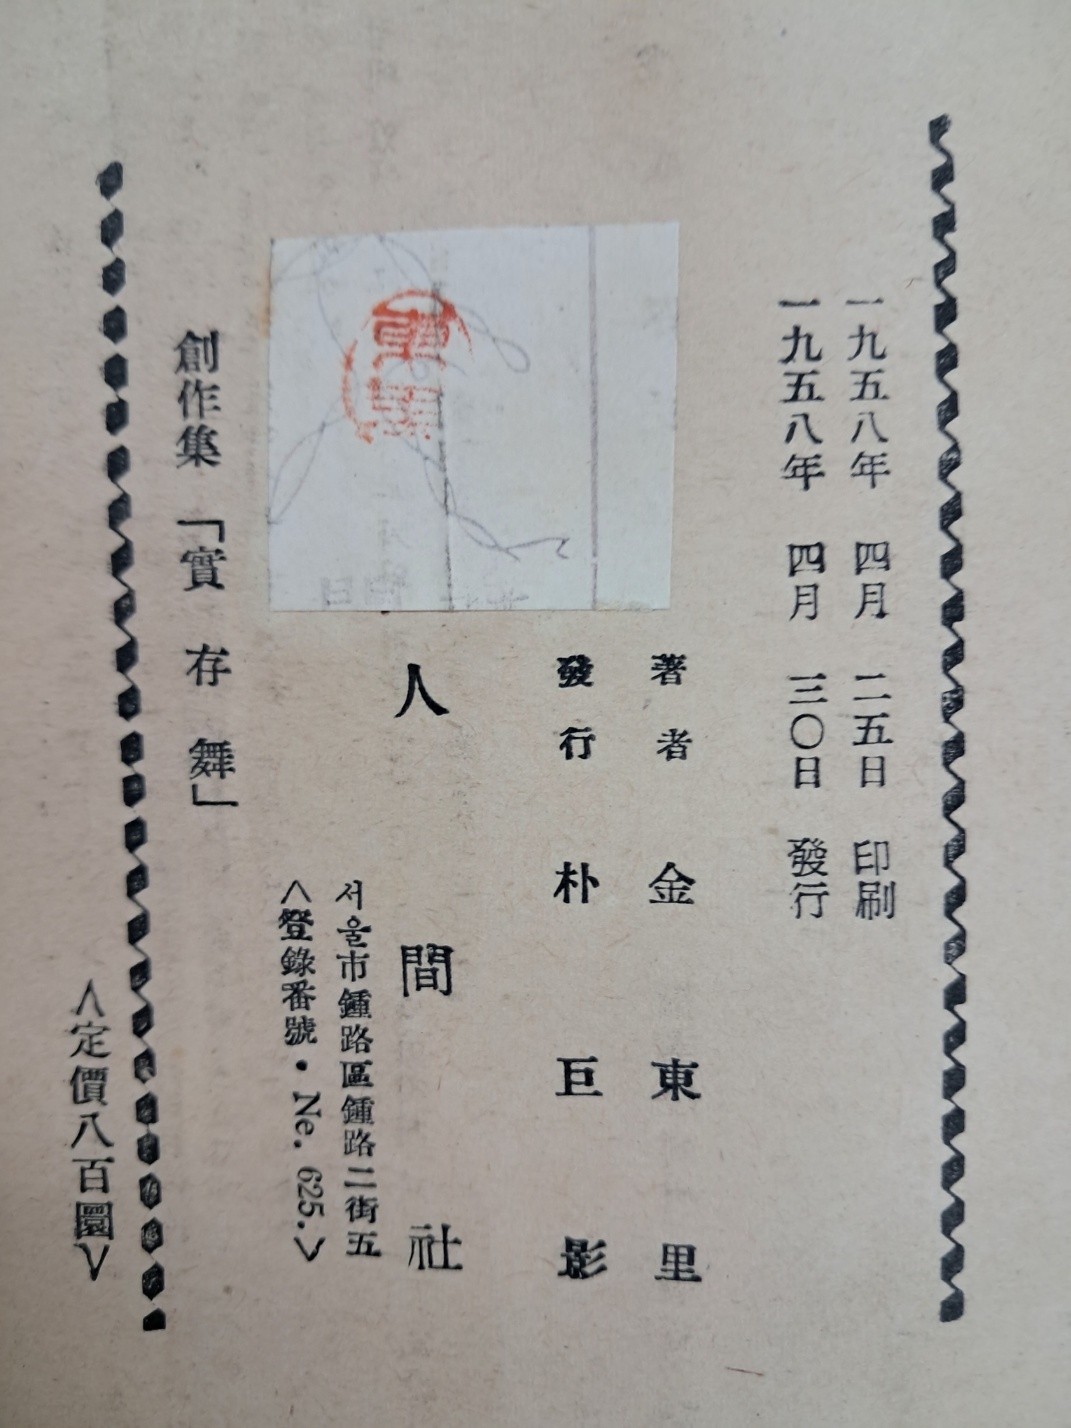 一九五八年 四月 二五日 印刷
一九五八年 四月 三〇日 發行
著者 金東里
發行 朴巨影
人間社
서울市鍾路區鍾路二街五
<登錄番號・Ne. 625.>
創作集 「實存舞」
<定價八百圜>
東里